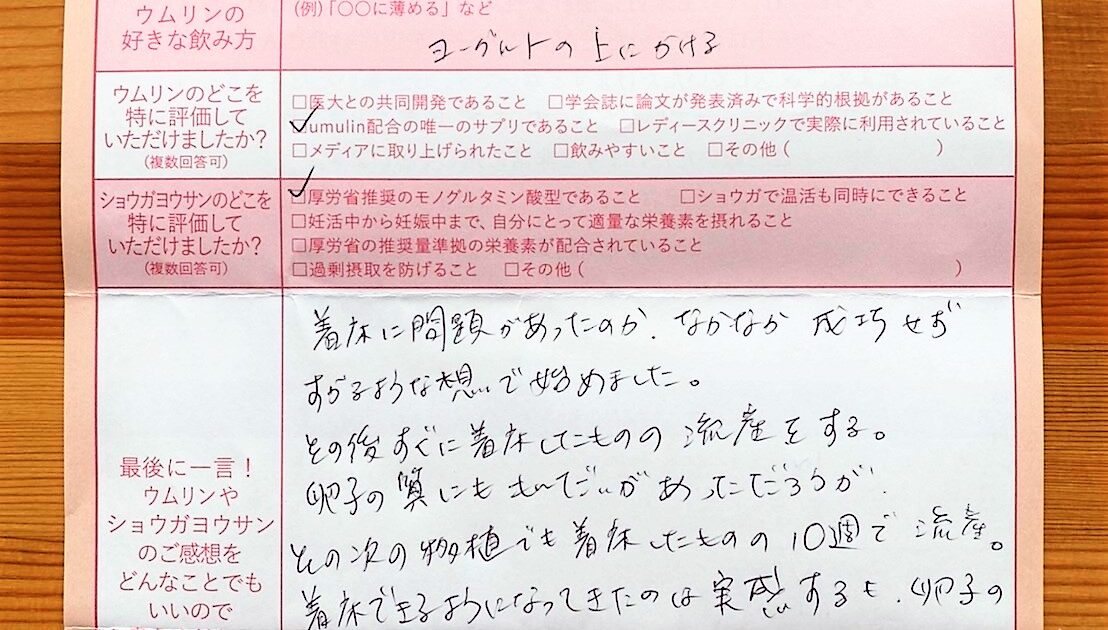 ウムリンの
好きな飲み方
(例)「〇〇に薄める」など
ヨーグルトの上にかける
ウムリンのどこを
特に評価して
いただけましたか?
(複数回答可)
□医大との共同開発であること □学会誌に論文が発表済みで科学的根拠があること
☑umulin配合の唯一のサプリであること □レディースクリニックで実際に利用されていること
□メディアに取り上げられたこと □飲みやすいこと □その他( )
ショウガヨウサンのどこを
特に評価して
いただけましたか?
(複数回答可)
☑厚労省推奨のモノグルタミン酸型であること □ショウガで温活も同時にできること
□妊活中から妊娠中まで、自分にとって適量な栄養素を摂れること
□厚労省の推奨量準拠の栄養素が配合されていること
□過剰摂取を防げること □その他( )
最後に一言!
ウムリンや
ショウガヨウサン
のご感想を
どんなことでも
いいので
着床に問題があったのか、なかなか成功せず
すがるような想いで始めました。
その後すぐに着床したものの流産をする。
卵子の質にももんだいがあっただろうが、
その次の移植でも着床したものの10週で流産。
着床できるようになってきたのは実感するも、卵子の